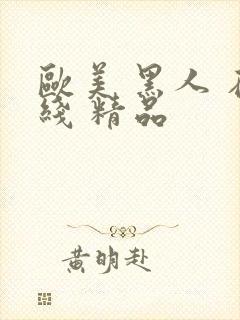 歐美黑人
綫精品
黄明赴